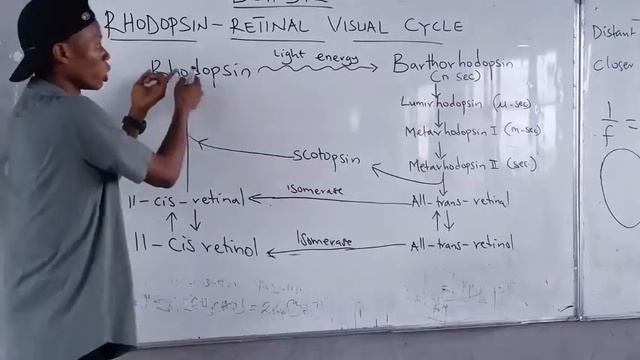 RHODOPSIN-RETINAL VISUAL CYCLE
Rhodopsin
Light energy
Barthorhodopsin
(n sec)
Lumirhodopsin (μ-sec)
Metarhodopsin I (m-sec)
Metarhodopsin II (sec)
scotopsin
11-cis-retinal
Isomerate
All-trans-retinal
11-cis retinol
Isomerase
All-trans-retinol
Distant
Closer
1/f =